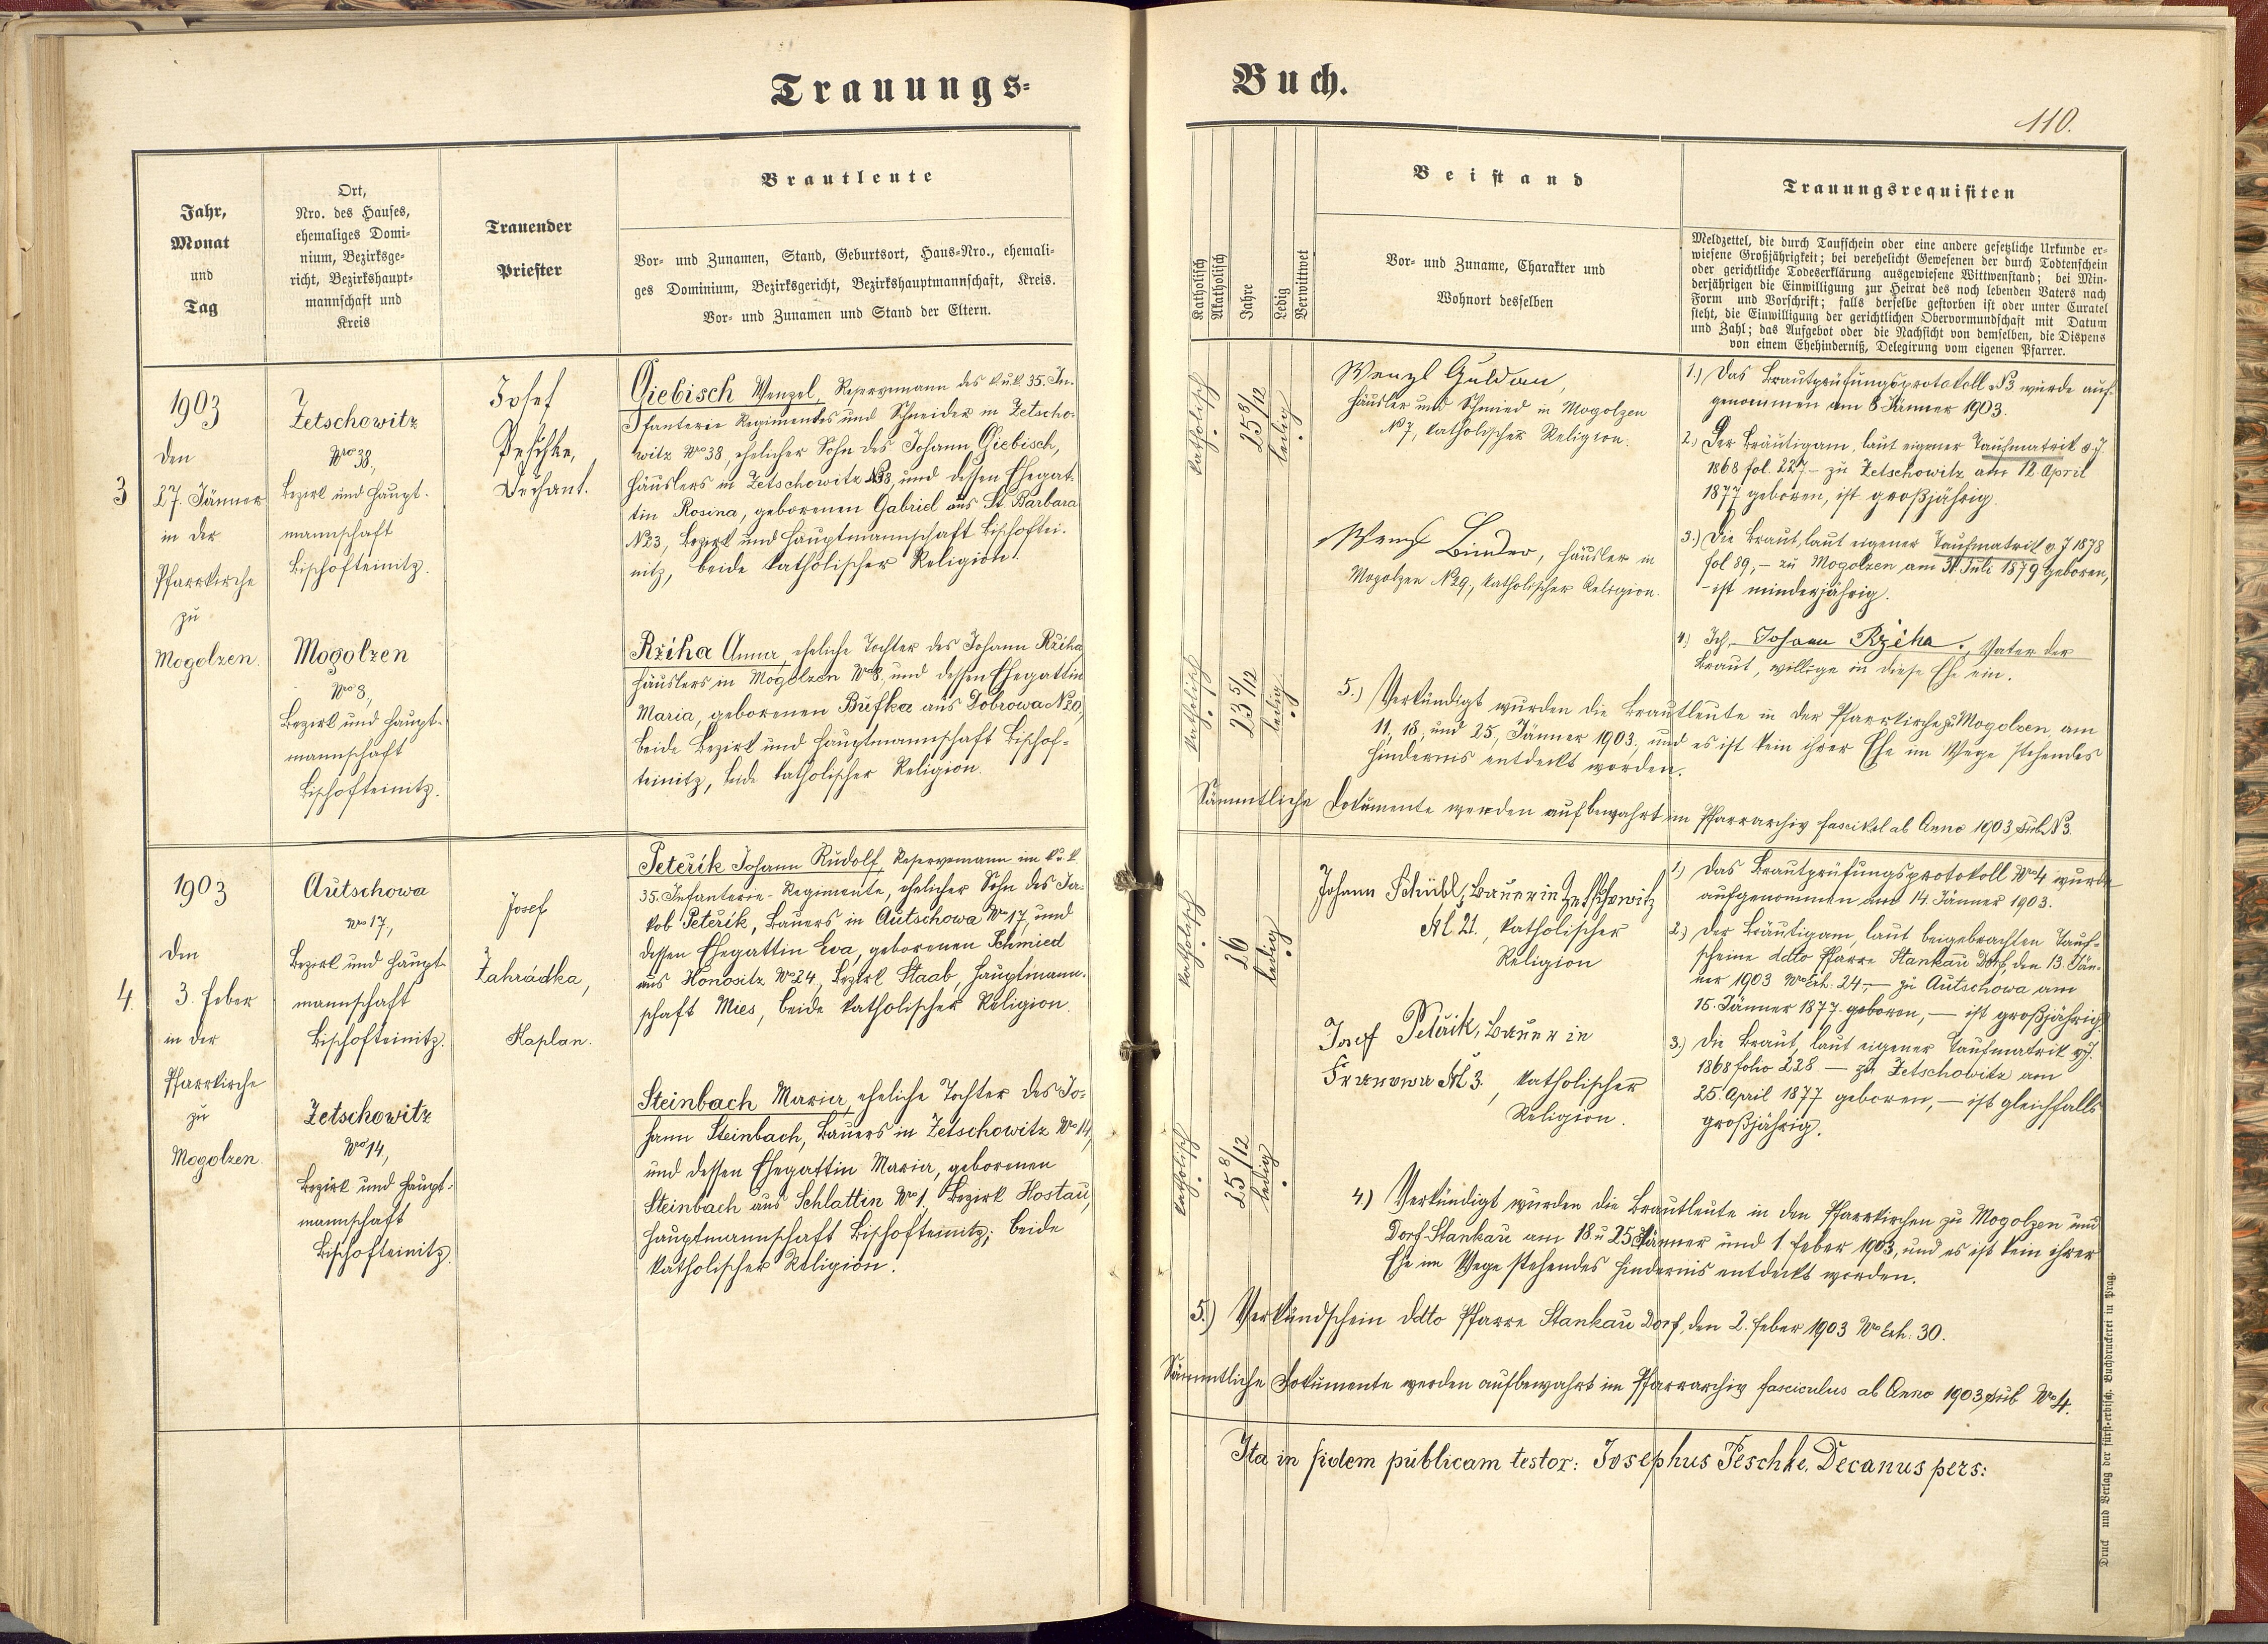 Trauungs=
Jahr,
Monat
und
Tag
Ort,
Nro. des Hauses,
ehemaliges Domi=
nium, Bezirksge=
richt, Bezirkshaupt=
mannschaft und
Kreis
Trauender
Priester
Brautleute
Vor- und Zunamen, Stand, Geburtsort, Haus-Nro., ehemali=
ges Dominium, Bezirksgericht, Bezirkshauptmannschaft, Kreis.
Vor- und Zunamen und Stand der Eltern.
3
1903
den
27. Jänner
in der
Pfarrkirche
zu
Mogolzen.
Zetschowitz
Nro 38,
Bezirk und Haupt-
mannschaft
Bischofteinitz.
Mogolzen
Nro 8,
Bezirk und Haupt-
mannschaft
Bischofteinitz.
Josef
Peschke,
Dechant.
Giebisch Wenzel, Reservemann des k.u.k. 35. In-
fanterie Regimentes und Schneider in Zetscho-
witz No 38, ehelicher Sohn des Johann Giebisch,
Häuslers in Zetschowitz N38, und dessen Ehegat-
tin Rosina, geborenen Gabriel aus St. Barbara
N23, Bezirk und Hauptmannschaft Bischoftei-
nitz, beide katholischer Religion.
Rziha Anna, eheliche Tochter des Johann Rziha,
Häuslers in Mogolzen No 8, und dessen Ehegattin
Maria, geborenen Bufka aus Dobrowa N20,
beide Bezirk und Hauptmannschaft Bischof-
teinitz, beide katholischer Religion.
4.
1903
den
3. Feber
in der
Pfarrkirche
zu
Mogolzen.
Autschowa
No 17,
Bezirk und Haupt-
mannschaft
Bischofteinitz.
Zetschowitz
No 14,
Bezirk und Haupt-
mannschaft
Bischofteinitz.
Josef
Zahrádka,
Kaplan.
Peteřík Johann Rudolf, Reservemann im k.u.k.
35. Infanterie-Regimente, ehelicher Sohn des Ja-
kob Peteřík, Bauers in Autschowa No 17, und
dessen Ehegattin Eva, geborenen Schmied
aus Honositz No 24, Bezirk Staab, Hauptmann-
schaft Mies, beide katholischer Religion.
Steinbach Maria, eheliche Tochter des Jo-
hann Steinbach, Bauers in Zetschowitz No 14,
und dessen Ehegattin Maria, geborenen
Steinbach aus Schlattin No 1, Bezirk Hostau,
Hauptmannschaft Bischofteinitz; beide
katholischer Religion.
Buch.
110.
Katholisch
Akatholisch
Jahre
Ledig
Verwittwet
Beistand
Vor- und Zuname, Charakter und
Wohnort desselben
Trauungsrequisiten
Meldzettel, die durch Taufschein oder eine andere gesetzliche Urkunde er=
wiesene Großjährigkeit; bei verehelicht Gewesenen der durch Todtenschein
oder gerichtliche Todeserklärung ausgewiesene Wittwenstand; bei Min=
derjährigen die Einwilligung zur Heirat des noch lebenden Vaters nach
Form und Vorschrift; falls derselbe gestorben ist oder unter Curatel
steht, die Einwilligung der gerichtlichen Obervormundschaft mit Datum
und Zahl; das Aufgebot oder die Nachsicht von demselben, die Dispens
von einem Ehehinderniß, Delegirung vom eigenen Pfarrer.
katholisch
25 8/12
ledig
Wenzl Guldan,
Häusler und Schmied in Mogolzen
N 7, katholischer Religion.
Wenzl Binder, Häusler in
Mogolzen N29, katholischer Religion.
katholisch
23 5/12
ledig
1.) Das Brautprüfungsprotokoll N3 wurde auf-
genommen am 8. Jänner 1903.
2.) Der Bräutigam, laut eigener Taufmatrik v.J.
1868 fol. 227 – zu Zetschowitz am 12. April
1877 geboren, ist großjährig.
3.) Die Braut, laut eigener Taufmatrik v.J 1878
fol 89, – zu Mogolzen am 31. Juli 1879 geboren,
– ist minderjährig.
4.) Ich, Johann Rziha, Vater der
Braut, willige in diese Ehe ein.
5.) Verkündigt wurden die Brautleute in der Pfarrkirche zu Mogolzen, am
11, 18, und 25, Jänner 1903, und es ist kein ihrer Ehe im Wege stehendes
Hindernis entdeckt worden.
Sämmtliche Dokumente werden aufbewahrt im Pfarrarchiv fascikel ab Anno 1903 sub N3.
katholisch
26
ledig
Johann Schübl, Bauer in Zetschowitz
N 21, katholischer
Religion
Josef Peteřik, Bauer in
N 3., katholischer
Religion.
katholisch
25 8/12
ledig
1.) Das Brautprüfungsprotokoll No 4 wurde
aufgenommen am 14. Jänner 1903.
2.) Der Bräutigam, laut beigebrachten Tauf-
scheine ddto Pfarre Stankau Dorf, den 13. Jän-
ner 1903 No Exh. 24, – zu Autschowa am
15. Jänner 1877 geboren, – ist großjährig.
3.) Die Braut, laut eigener Taufmatrik v.J.
1868 folio 228 – zu Zetschowitz am
25. April 1877 geboren, – ist gleichfalls
großjährig.
4.) Verkündigt wurden die Brautleute in den Pfarrkirchen zu Mogolzen und
Dorf-Stankau am 18 u 25 Jänner und 1. Feber 1903, und es ist kein ihrer
Ehe im Wege stehendes Hindernis entdeckt worden.
5.) Verkündschein ddto Pfarre Stankau Dorf, den 2. Feber 1903 No Exh. 30.
Sämmtliche Dokumente werden aufbewahrt im Pfarrarchiv fasciculus ab Anno 1903 sub No 4.
Ita in fidem publicam testor: Josephus Peschke, Decanus pers:
Druck und Verlag der fürst-erbisch. Buchdruckerei in Prag.